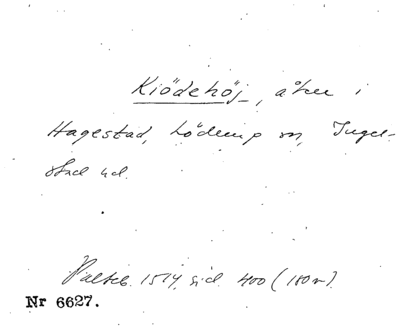 Kiödehöj, åker i
Hagestad, Löderup sn, Ingel-
stad hd.
Palteb. 1514, sid. 400 (180v).
Nr 6627.